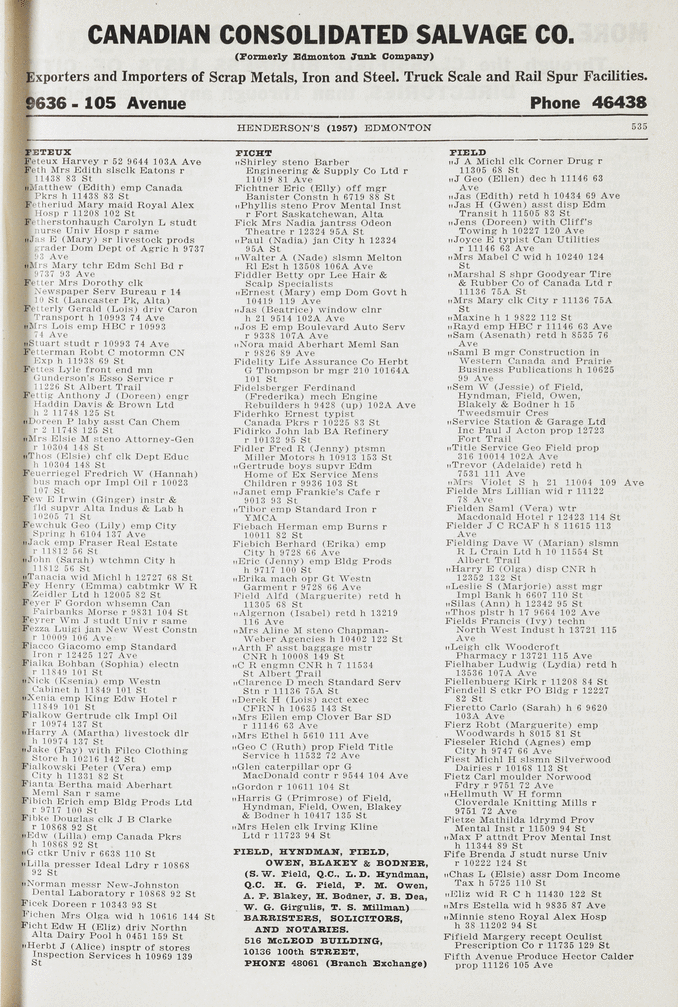 CANADIAN CONSOLIDATED SALVAGE CO.
(Formerly Edmonton Junk Company)
Exporters and Importers of Scrap Metals, Iron and Steel. Truck Scale and Rail Spur Facilities.
9636 - 105 Avenue Phone 46438
HENDERSON'S (1957) EDMONTON 535
FETEUX
Feteux Harvey r 52 9644 103A Ave
Feth Mrs Edith slsclk Eatons r
11438 83 St
"Matthew (Edith) emp Canada
Pkrs h 11438 83 St
Fetheriud Mary maid Royal Alex
Hosp r 11208 102 St
Fetherstonhaugh Carolyn L studt
nurse Univ Hosp r same
"Jas E (Mary) sr livestock prods
grader Dom Dept of Agric h 9737
93 Ave
"Mrs Mary tchr Edm Schl Bd r
9737 93 Ave
Fetter Mrs Dorothy clk
Newspaper Serv Bureau r 14
10 St (Lancaster Pk, Alta)
Fetterly Gerald (Lois) driv Caron
Transport h 10993 74 Ave
"Mrs Lois emp HBC r 10993
74 Ave
"Stuart studt r 10993 74 Ave
Fetterman Robt C motormn CN
Exp h 11938 69 St
Fettes Lyle front end mn
Gunderson's Esso Service r
11226 St Albert Trail
Fettig Anthony J (Doreen) engr
Haddin Davis & Brown Ltd
h 2 11748 125 St
"Doreen P laby asst Can Chem
r 2 11748 125 St
"Mrs Elsie M steno Attorney-Gen
r 10304 148 St
"Thos (Elsie) chf clk Dept Educ
h 10304 148 St
Feuerriegel Fredrich W (Hannah)
bus mach opr Impl Oil r 10023
107 St
Few E Irwin (Ginger) instr &
fld supvr Alta Indus & Lab h
10205 71 St
Fewchuk Geo (Lily) emp City
Spring h 6104 137 Ave
"Jack emp Fraser Real Estate
r 11812 56 St
"John (Sarah) wtchmn City h
11812 56 St
"Tanacia wid Michl h 12727 68 St
Fey Henry (Emma) cabtmkr W R
Zeidler Ltd h 12005 82 St
Feyer F Gordon whsemn Can
Fairbanks Morse r 9831 104 St
Feyrer Wm J studt Univ r same
Fezza Luigi jan New West Constn
r 10009 106 Ave
Fiacco Giacomo emp Standard
Iron r 12425 127 Ave
Fialka Bohban (Sophia) electn
r 11849 101 St
"Nick (Ksenia) emp Westn
Cabinet h 11849 101 St
"Xenia emp King Edw Hotel r
11849 101 St
Fialkow Gertrude clk Impl Oil
r 10974 137 St
"Harry A (Martha) livestock dlr
h 10974 137 St
"Jake (Fay) with Filco Clothing
Store h 10216 142 St
Fialkowski Peter (Vera) emp
City h 11331 82 St
Fianta Bertha maid Aberhart
Meml San r same
Fibich Erich emp Bldg Prods Ltd
r 9717 100 St
Fibke Douglas clk J B Clarke
r 10868 92 St
"Edw (Lilla) emp Canada Pkrs
h 10868 92 St
"G ctkr Univ r 6638 110 St
"Lilla presser Ideal Ldry r 10868
92 St
"Norman messr New-Johnston
Dental Laboratory r 10868 92 St
Ficek Doreen r 10343 93 St
Fichen Mrs Olga wid h 10616 144 St
Ficht Edw H (Eliz) driv Northn
Alta Dairy Pool h 0451 159 St
"Herbt J (Alice) insptr of stores
Inspection Services h 10969 139
St
FICHT
"Shirley steno Barber
Engineering & Supply Co Ltd r
11019 81 Ave
Fichtner Eric (Elly) off mgr
Banister Constn h 6719 88 St
"Phyllis steno Prov Mental Inst
r Fort Saskatchewan, Alta
Fick Mrs Nadia jantrss Odeon
Theatre r 12324 95A St
"Paul (Nadia) jan City h 12324
95A St
"Walter A (Nade) slsmn Melton
Rl Est h 13508 106A Ave
Fiddler Betty opr Lee Hair &
Scalp Specialists
"Ernest (Mary) emp Dom Govt h
10419 119 Ave
"Jas (Beatrice) window clnr
h 21 9514 102A Ave
"Jos E emp Boulevard Auto Serv
r 9338 107A Ave
"Nora maid Aberhart Meml San
r 9826 89 Ave
Fidelity Life Assurance Co Herbt
G Thompson br mgr 210 10164A
101 St
Fidelsberger Ferdinand
(Frederika) mech Engine
Rebuilders h 9428 (up) 102A Ave
Fiderhko Ernest typist
Canada Pkrs r 10225 83 St
Fidirko John lab BA Refinery
r 10132 95 St
Fidler Fred R (Jenny) ptsmn
Miller Motors h 10913 153 St
"Gertrude boys supvr Edm
Home of Ex Service Mens
Children r 9936 103 St
"Janet emp Frankie's Cafe r
9013 93 St
"Tibor emp Standard Iron r
YMCA
Fiebach Herman emp Burns r
10011 82 St
Fiebich Berhard (Erika) emp
City h 9728 66 Ave
"Eric (Jenny) emp Bldg Prods
h 9717 100 St
"Erika mach opr Gt Westn
Garment r 9728 66 Ave
Field Alfd (Marguerite) retd h
11305 68 St
"Algernon (Isabel) retd h 13219
116 Ave
"Mrs Aline M steno Chapman-
Weber Agencies h 10402 122 St
"Arth F asst baggage mstr
CNR h 10008 149 St
"C R engmn CNR h 7 11534
St Albert Trail
"Clarence D mech Standard Serv
Stn r 11136 75A St
"Derek H (Lois) acct exec
CFRN h 10635 143 St
"Mrs Ellen emp Clover Bar SD
r 11146 63 Ave
"Mrs Ethel h 5610 111 Ave
"Geo C (Ruth) prop Field Title
Service h 11532 72 Ave
"Glen caterpillar opr G
MacDonald contr r 9544 104 Ave
"Gordon r 10611 104 St
"Harris G (Primrose) of Field,
Hyndman, Field, Owen, Blakey
& Bodner h 10417 135 St
"Mrs Helen clk Irving Kline
Ltd r 11723 94 St
FIELD, HYNDMAN, FIELD,
OWEN, BLAKEY & BODNER,
(S. W. Field, Q.C., L. D. Hyndman,
Q.C. H. G. Field, P. M. Owen,
A. F. Blakey, H. Bodner, J. B. Dea,
W. G. Girgulis, T. S. Millman)
BARRISTERS, SOLICITORS,
AND NOTARIES.
516 McLEOD BUILDING,
10136 100th STREET,
PHONE 48061 (Branch Exchange)
FIELD
"J A Michl clk Corner Drug r
11305 68 St
"J Geo (Ellen) dec h 11146 63
Ave
"Jas (Edith) retd h 10434 69 Ave
"Jas H (Gwen) asst disp Edm
Transit h 11505 83 St
"Jens (Doreen) with Cliff's
Towing h 10227 120 Ave
"Joyce E typist Can Utilities
r 11146 63 Ave
"Mrs Mabel C wid h 10240 124
St
"Marshal S shpr Goodyear Tire
& Rubber Co of Canada Ltd r
11136 75A St
"Mrs Mary clk City r 11136 75A
St
"Maxine h 1 9822 112 St
"Rayd emp HBC r 11146 63 Ave
"Sam (Asenath) retd h 8535 76
Ave
"Saml B mgr Construction in
Western Canada and Prairie
Business Publications h 10625
99 Ave
"Sem W (Jessie) of Field,
Hyndman, Field, Owen,
Blakely & Bodner h 15
Tweedsmuir Cres
"Service Station & Garage Ltd
Inc Paul J Acton prop 12723
Fort Trail
"Title Service Geo Field prop
316 10014 102A Ave
"Trevor (Adelaide) retd h
7531 111 Ave
"Mrs Violet S h 21 11004 109 Ave
Fielde Mrs Lillian wid r 11122
78 Ave
Fielden Saml (Vera) wtr
Macdonald Hotel r 12423 114 St
Fielder J C RCAF h 8 11615 113
Ave
Fielding Dave W (Marian) slsmn
R L Crain Ltd h 10 11554 St
Albert Trail
"Harry E (Olga) disp CNR h
12352 132 St
"Leslie S (Marjorie) asst mgr
Impl Bank h 6607 110 St
"Silas (Ann) h 12342 95 St
"Thos plstr h 17 9664 102 Ave
Fields Francis (Ivy) techn
North West Indust h 13721 115
Ave
"Leigh clk Woodcroft
Pharmacy r 13721 115 Ave
Fielhaber Ludwig (Lydia) retd h
13536 107A Ave
Fiellenbuerg Kirk r 11208 84 St
Fiendell S ctkr PO Bldg r 12227
82 St
Fieretto Carlo (Sarah) h 6 9620
103A Ave
Fierz Robt (Marguerite) emp
Woodwards h 8015 81 St
Fieseler Richd (Agnes) emp
City h 9747 66 Ave
Fiest Michl H slsmn Silverwood
Dairies r 10168 113 St
Fietz Carl moulder Norwood
Fdry r 9751 72 Ave
"Hellmuth W H formn
Cloverdale Knitting Mills r
9751 72 Ave
Fietze Mathilda ldrymd Prov
Mental Inst r 11509 94 St
"Max P attndt Prov Mental Inst
h 11344 89 St
Fife Brenda J studt nurse Univ
r 10222 124 St
"Chas L (Elsie) assr Dom Income
Tax h 5725 110 St
"Eliz wid R C h 11430 122 St
"Mrs Estella wid h 9835 87 Ave
"Minnie steno Royal Alex Hosp
h 38 11202 94 St
Fifield Margery recept Oculist
Prescription Co r 11735 129 St
Fifth Avenue Produce Hector Calder
prop 11126 105 Ave